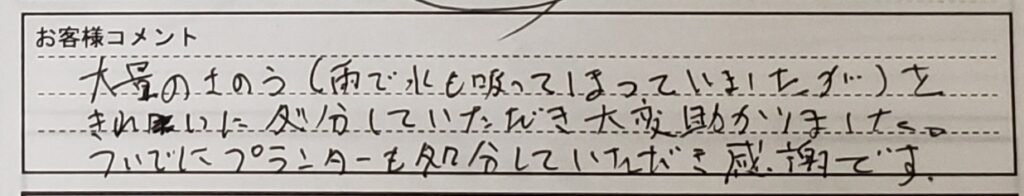 お客様コメント
大量の土のう(雨で水も吸ってしまっていましたが)を
きれいに処分していただき大変助かりました。
ついでにプランターも処分していただき感謝です。